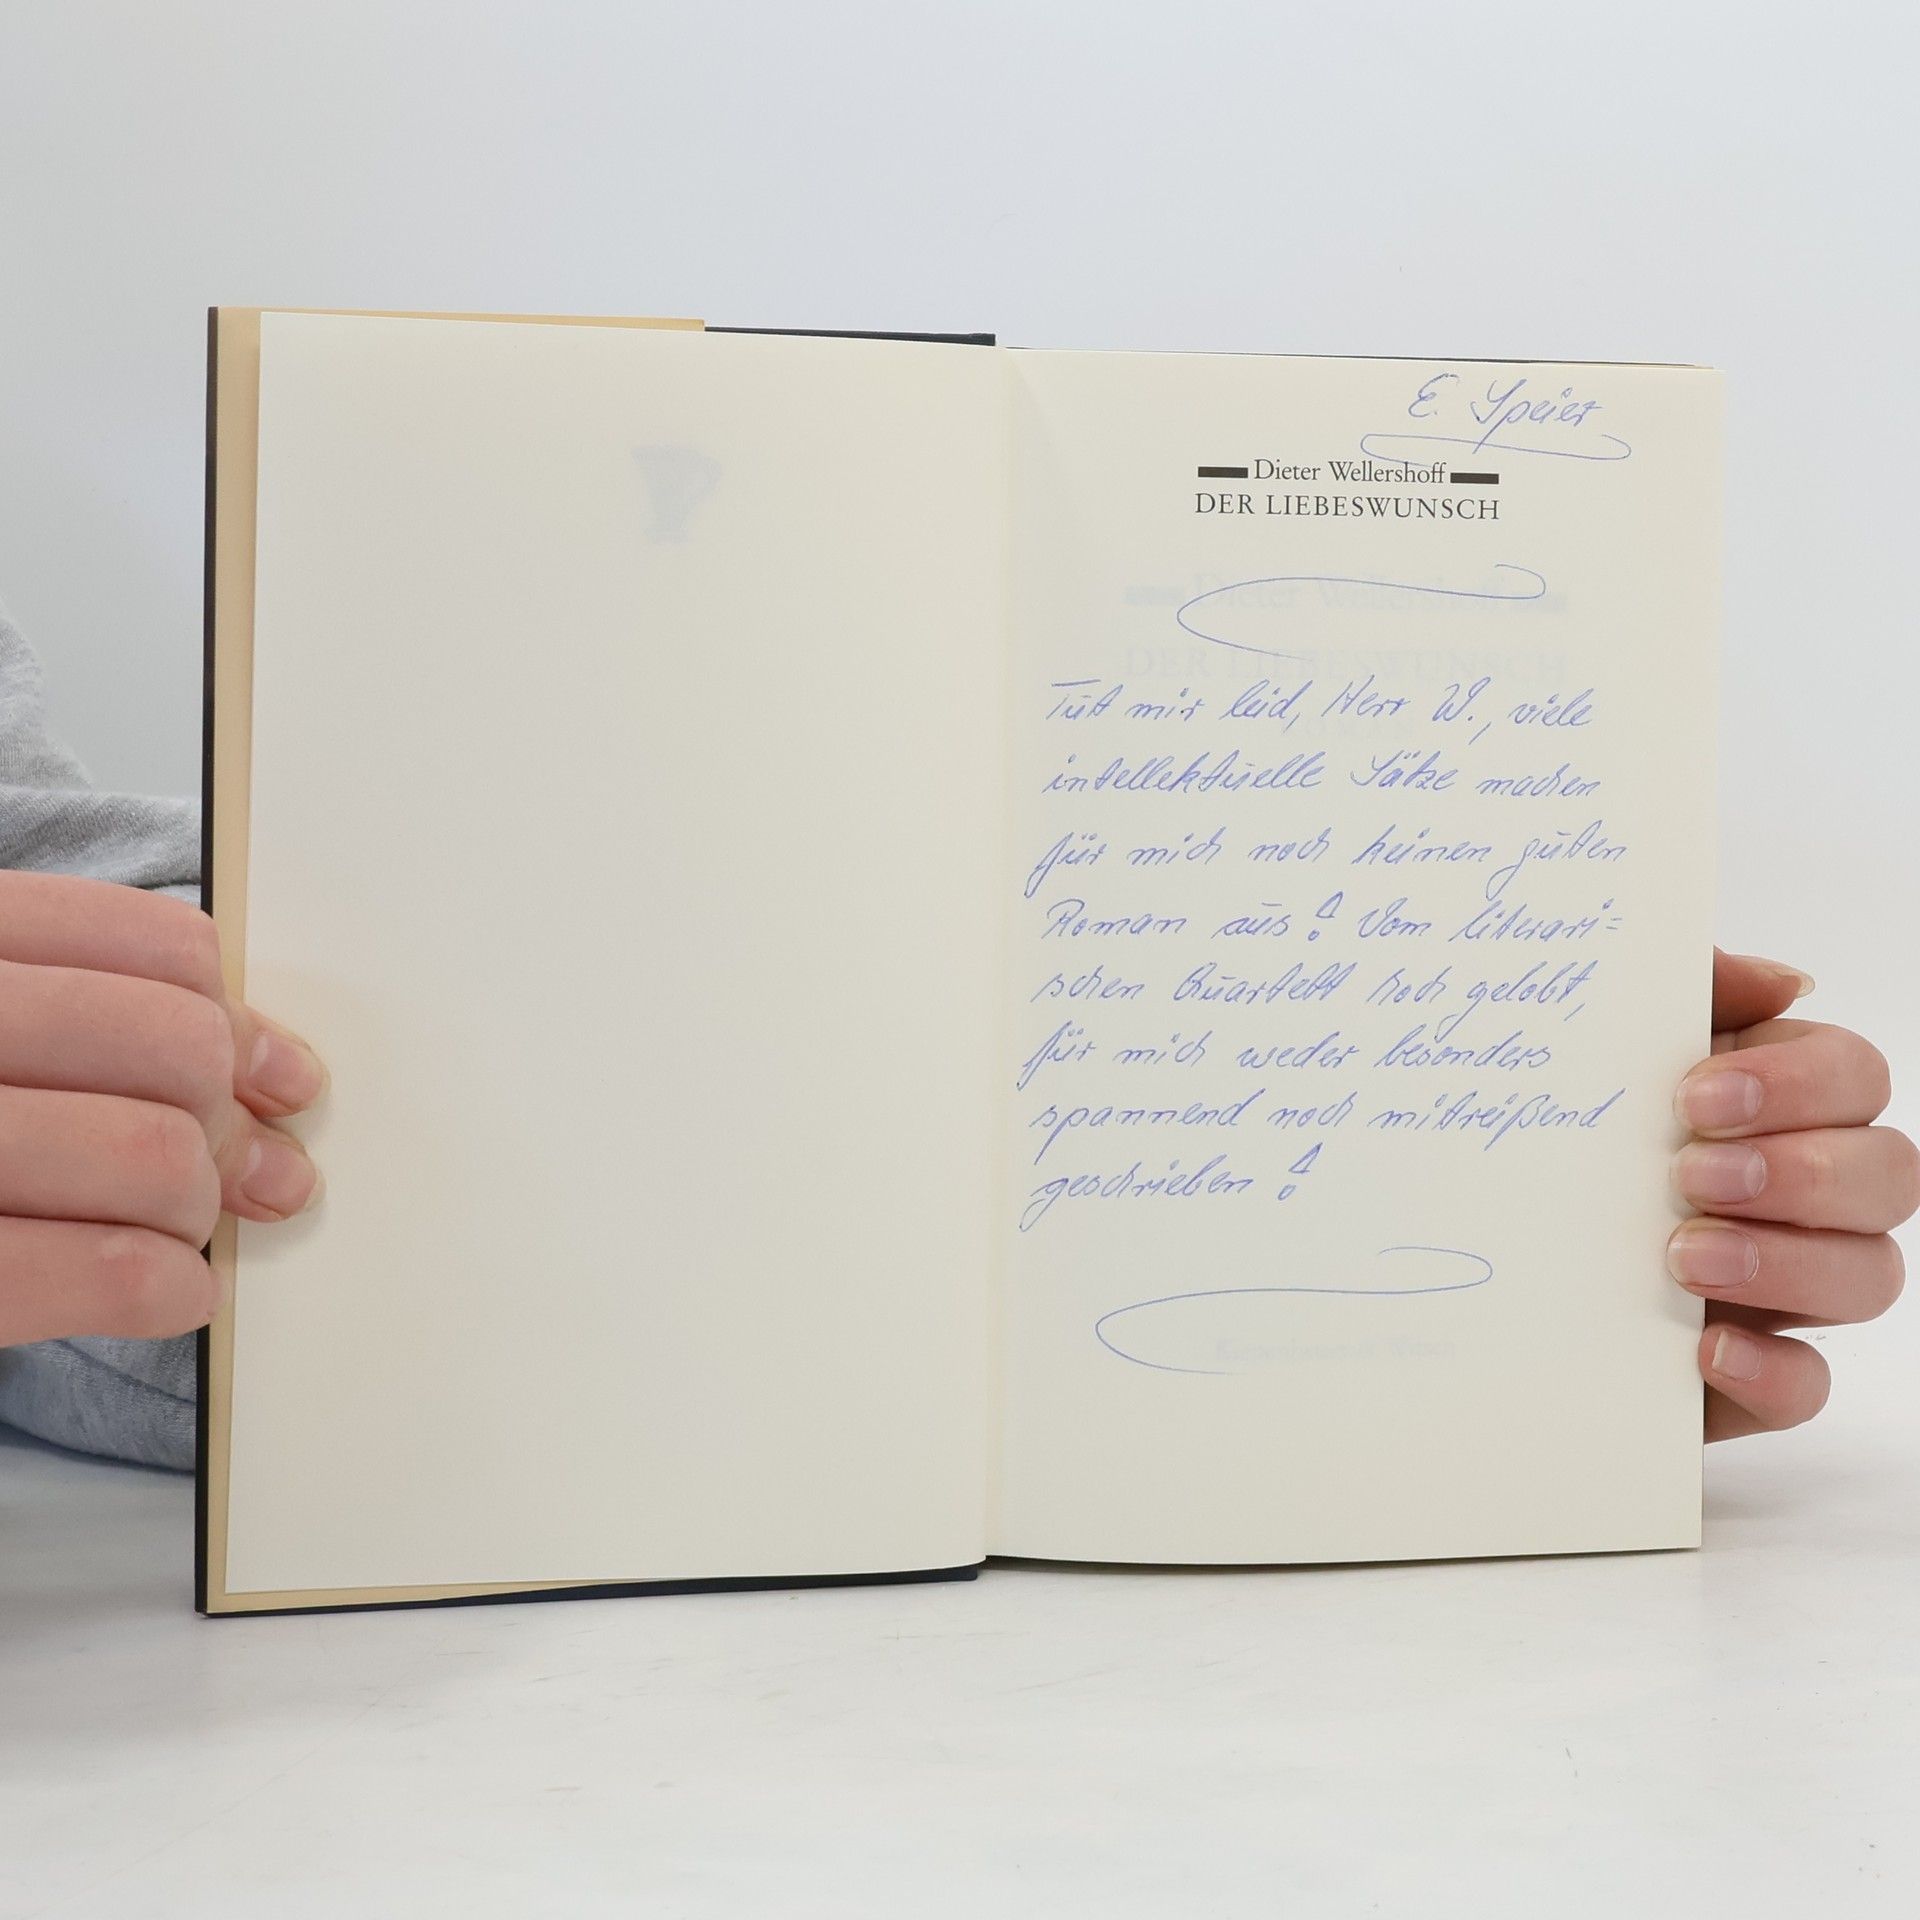 E. Speier
Dieter Wellershoff
DER LIEBESWUNSCH
Dieter Wellershoff
DER LIEBESWUNSCH
Tut mir leid, Herr W., viele
intellektuelle Sätze machen
für mich noch keinen guten
Roman aus! Vom literari=
schen Quartett hoch gelobt,
für mich weder besonders
spannend noch mitreißend
geschrieben!
Kiepenheuer & Witsch